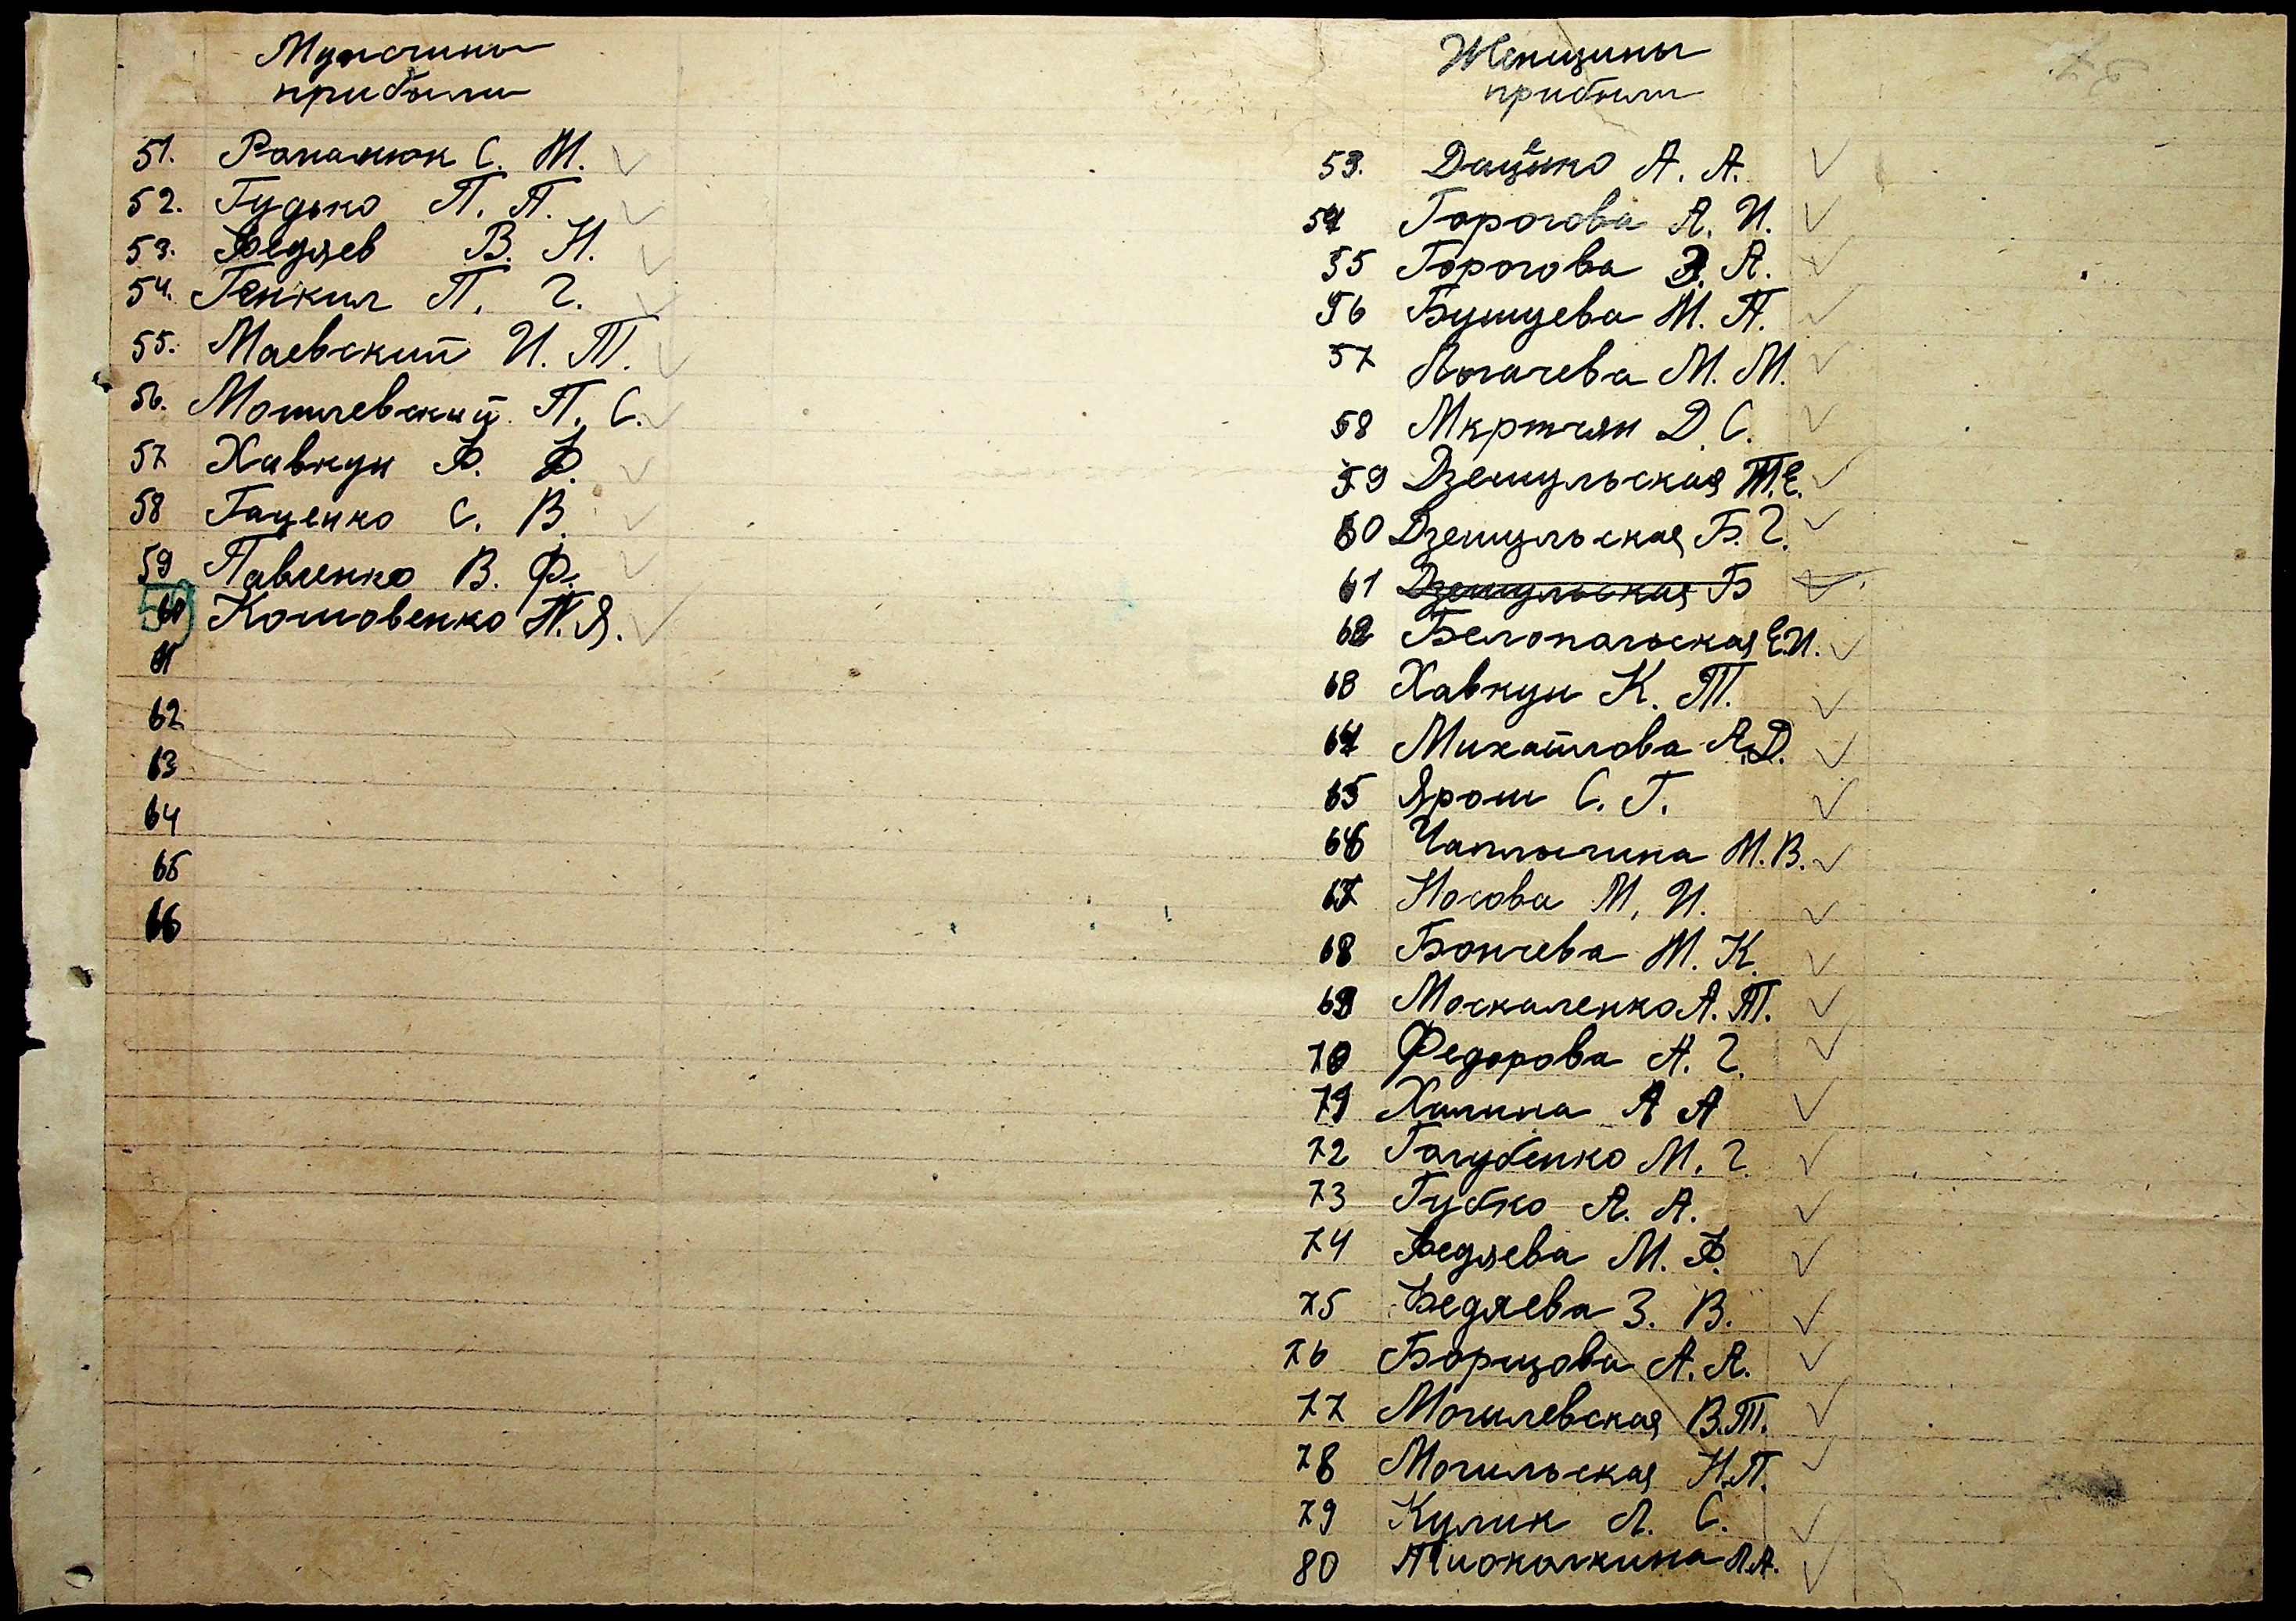 Мужчины
прибыли
51. Романюк С. М.
52. Гудько П. П.
53. Федяев В. Н.
54. Генкил П. Г.
55. Маевский И. Т.
56. Могилевский П. С.
57 Хавкун Ф. Ф.
58 Гаценко С. В.
59 Павленко В. Ф.
60 Коновенко П. Я.
61
62
63
64
65
66
Женщины
прибыли
53. Даценко А. А.
54 Горохова А. И.
55 Горохова З. А.
56 Бушуева М. П.
57 Логачева М. М.
58 Мкртчян Д. С.
59 Дземульская Т. Е.
60 Дземульская Б. Г.
61 Дземульская Б
62 Белопольская Е. И.
63 Хавкун К. Т.
64 Михайлова А. Д.
65 Ярош С. Г.
66 Чаплыгина М. В.
67 Носова М. И.
68 Бончева М. К.
69 Москаленко А. Т.
70 Федорова А. Г.
71 Халина А А
72 Голубенко М. Г.
73 Губко А. А.
74 Федяева М. Ф.
75 Федяева З. В.
76 Борщова А. А.
77 Могилевская В. Т.
78 Могильская Н. П.
79 Кулик А. С.
80 Л. А.